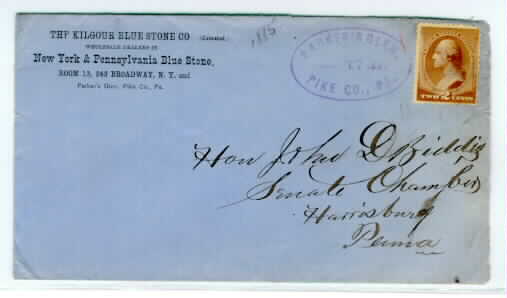 THE KILGOUR BLUE STONE CO (Limited.)
WHOLESALE DEALERS IN
New York & Pennsylvania Blue Stone,
ROOM 13, 263 BROADWAY, N. Y. and
Parker's Glen, Pike Co., Pa.
1885
PARKER'S GLEN,
PIKE CO., PA.
TWO 2 CENTS
Hon John D Biddis
Senate Chamber
Harrisburg
Penna